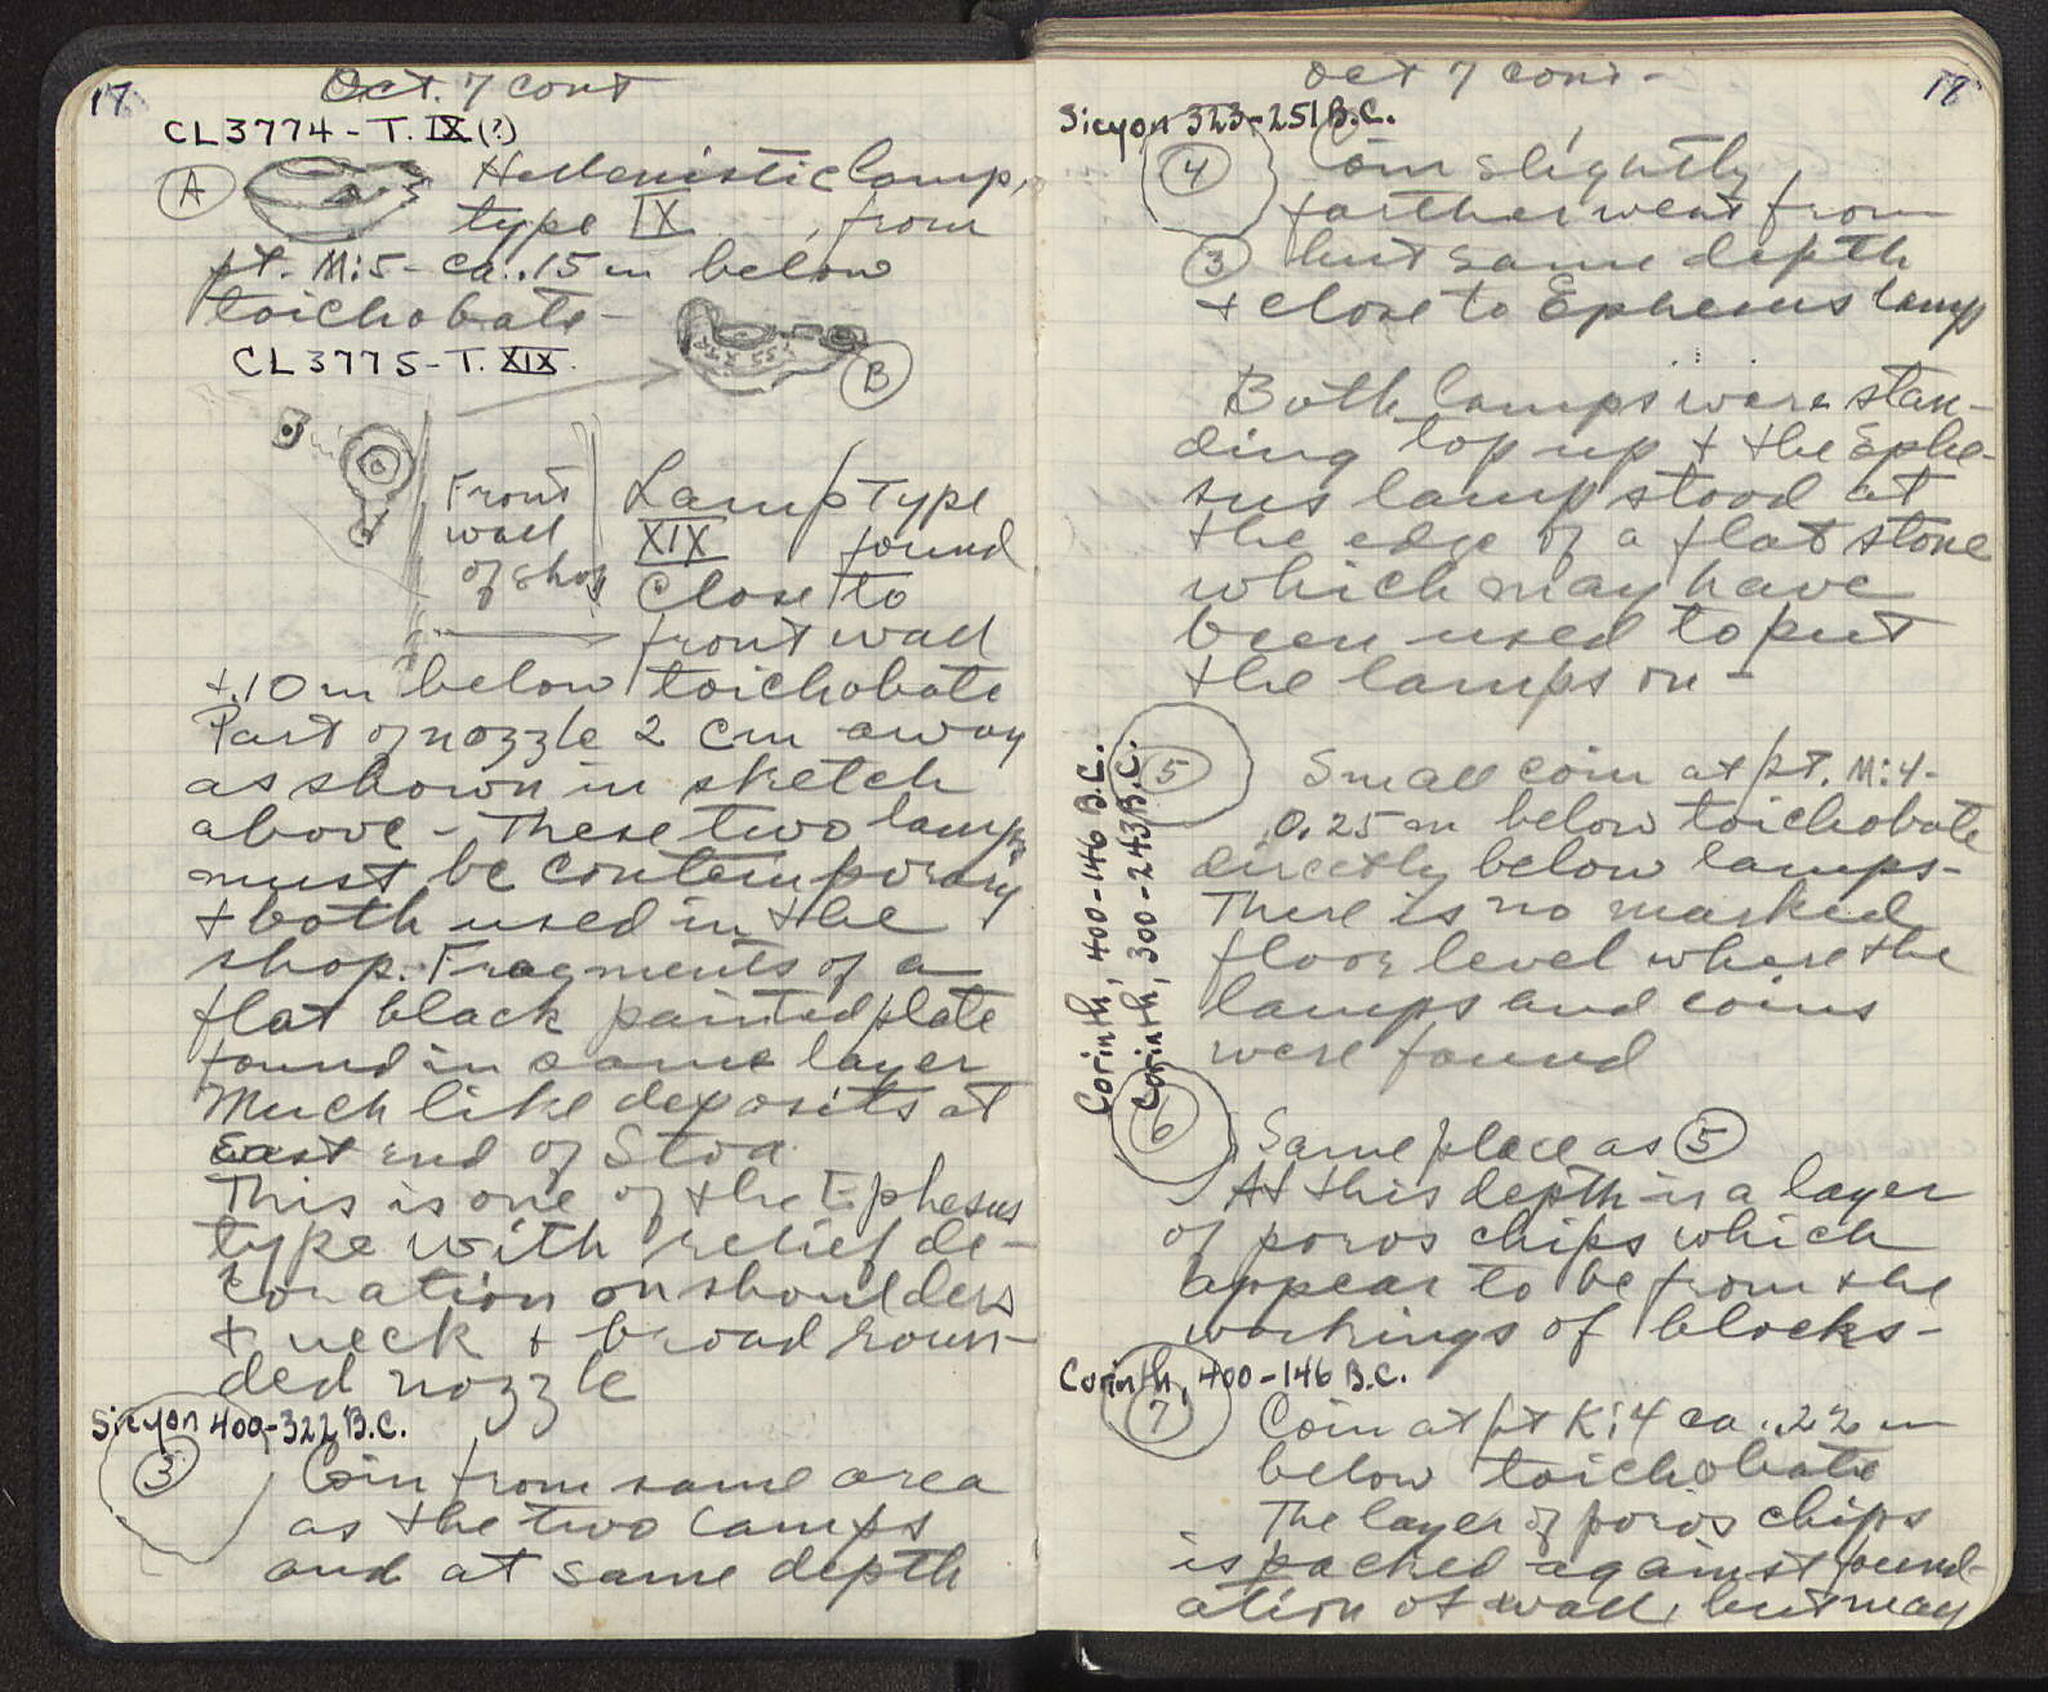 17
Oct. 7 cont
CL3774 - T. IX (?)
A
Hellenistic lamp,
type IX , from
pt. M:5 - ca. .15 m below
toichobate -
CL3775 - T. XIX.
B
B
Front
wall
of shop
Lamp Type
XIX found
Close to
front wall
+.10 m below toichobate
Part of nozzle 2 cm away
as shown in sketch
above - These two lamps
must be contemporary
+ both used in the
shop. Fragments of a
flat black painted plate
found in same layer
Much like deposits at
East end of Stoa.
This is one of the Ephesus
type with relief de-
coration on shoulders
+ neck + broad roun-
ded nozzle
Sicyon 400-322 B.C.
3
Coin from same area
as the two lamps
and at same depth
Oct 7 cont -
17
Sicyon 323-251 B.C.
4
Coin slightly
farther west from
3 but same depth
+ close to Ephesus lamp
Both lamps were stan-
ding top up + the Ephe-
sus lamp stood at
the edge of a flat stone
which may have
been used to put
the lamps on -
Corinth, 400-146 B.C.
Corinth, 300-243 B.C.
5
Small coin at pt. M:4 -
0.25 m below toichobate
directly below lamps -
There is no marked
floor level where the
lamps and coins
were found
6
Same place as 5
At this depth is a layer
of poros chips which
appear to be from the
workings of blocks -
Corinth, 400-146 B.C.
7
Coin at pt K:4 ca .22 m
below toichobate
The layer of poros chips
is packed against found-
ation of wall, but may